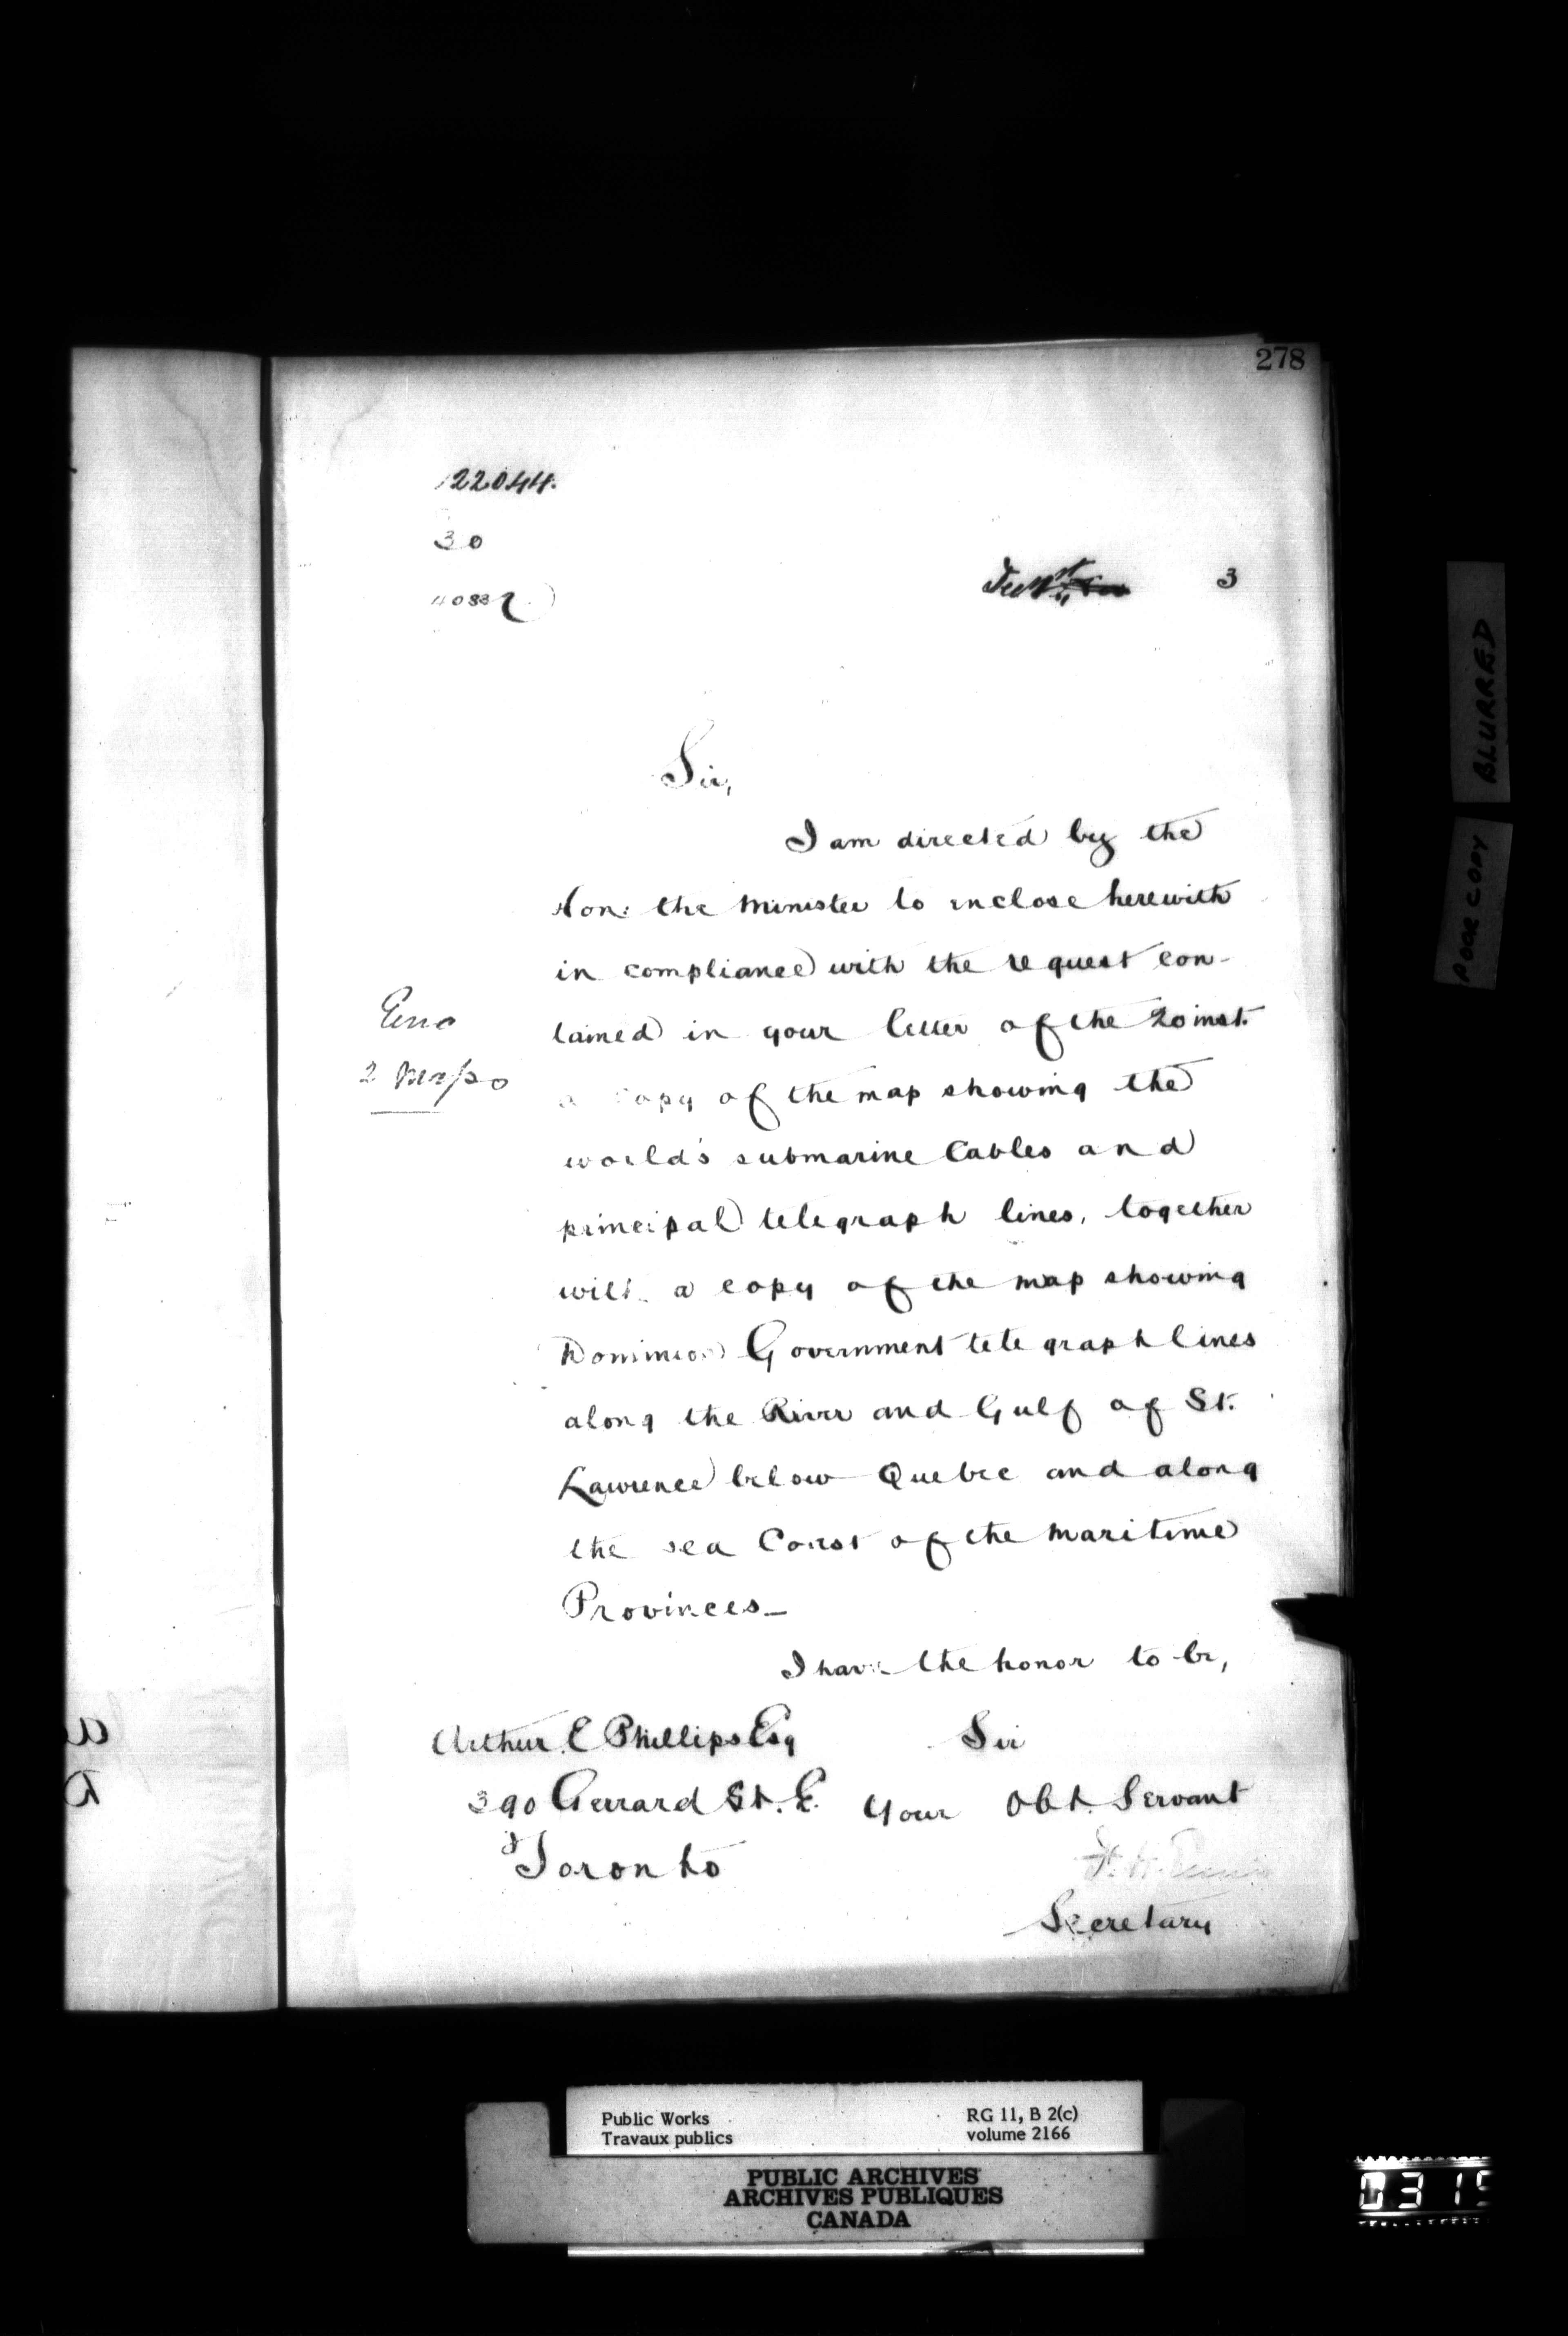 278
122044.
30
3
Sir,
I am directed by the
Hon: the Minister to inclose herewith
in compliance with the request con-
tained in your letter of the 20 inst.
Enc
2 Maps
a copy of the map showing the
world's submarine Cables and
principal telegraph lines, together
with a copy of the map showing
Dominion Government telegraph lines
along the River and Gulf of St.
Lawrence below Quebec and along
the sea Coast of the Maritime
Provinces_
I have the honor to be,
Arthur E Phillips Esq Sir
390 Gerrard St. E. Your Obt. Servant
Toronto
Secretary
BLURRED
POOR COPY
Public Works RG 11, B 2(c)
Travaux publics volume 2166
PUBLIC ARCHIVES
ARCHIVES PUBLIQUES
CANADA